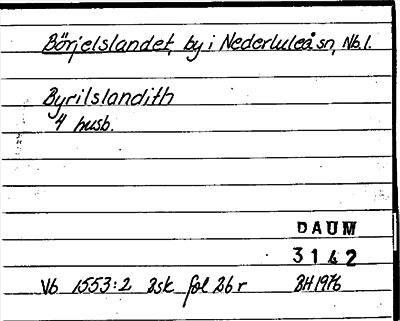 Börjelslandet, by i Nederluleå sn, Nb.l.
Byrilslandith
4 husb.
DAUM
3142
Vb 1553:2 Bsk fol 26 r BH 1976